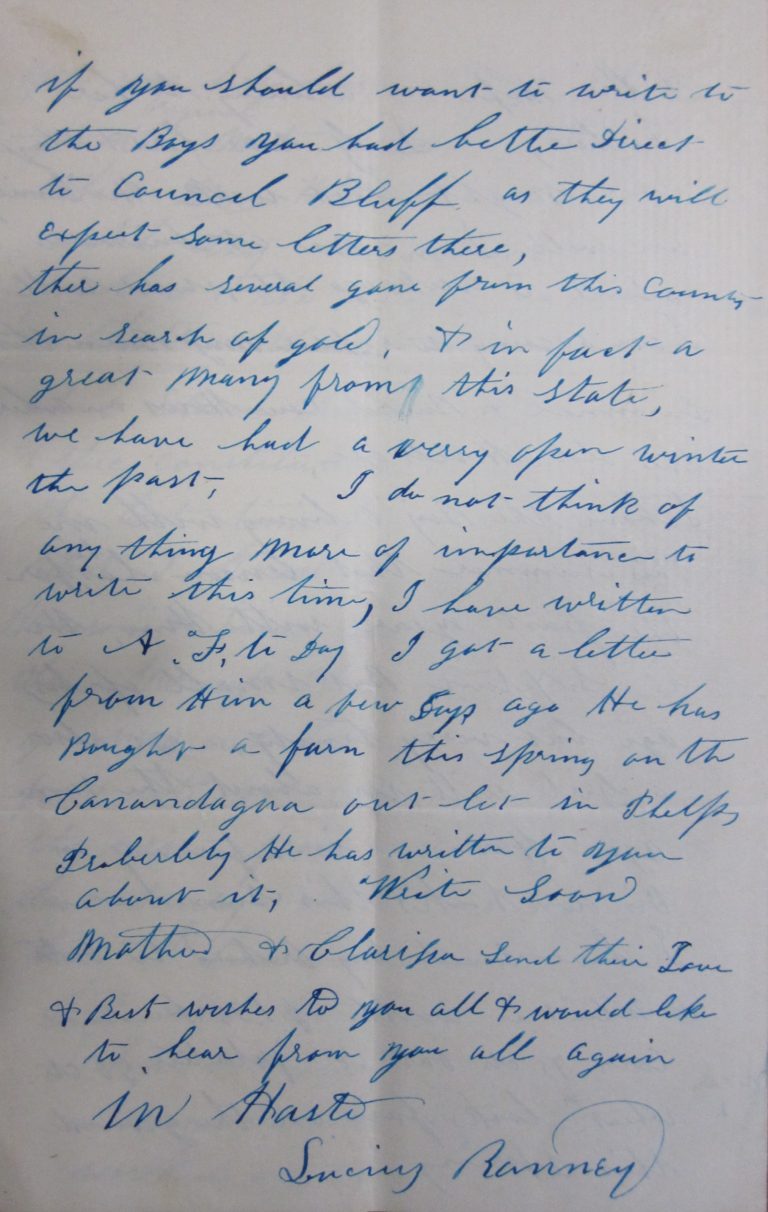 if you should want to write to
the Boys you had bettre Direct
to Council Bluff, as they will
expect some letters there,
ther has several gone from this County
in search of gold, & in fact a
great Many from this State,
we have had a verry open winter
the past, I do not think of
any thing More of importance to
write this time, I have written
to A. F. to Day I got a letter
from Him a few Days ago He has
Bought a farn this spring on the
Canandagua out let in Phelps
Proberbly He has written to you
about it, Write Soon
Mother & Clarissa send their Love
& Best wishes to you all & would like
to hear from you all again
in Haste
Lucius Ranney